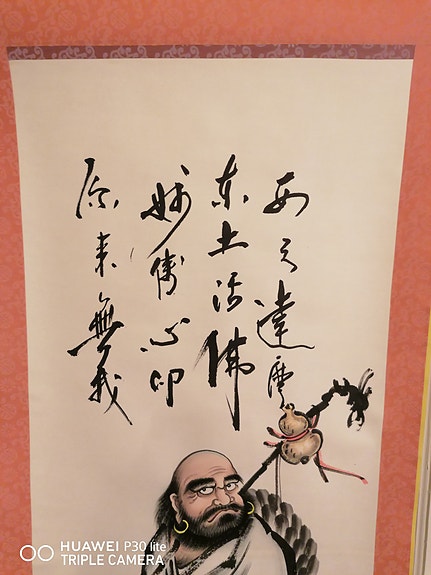 西天達摩
東土活佛
妙傳心印
原來無我
HUAWEI P30 lite
TRIPLE CAMERA